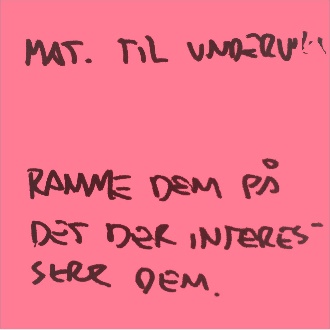 MAT. TIL UNDERV
RAMME DEM PÅ
DET DER INTERES-
SERR DEM.